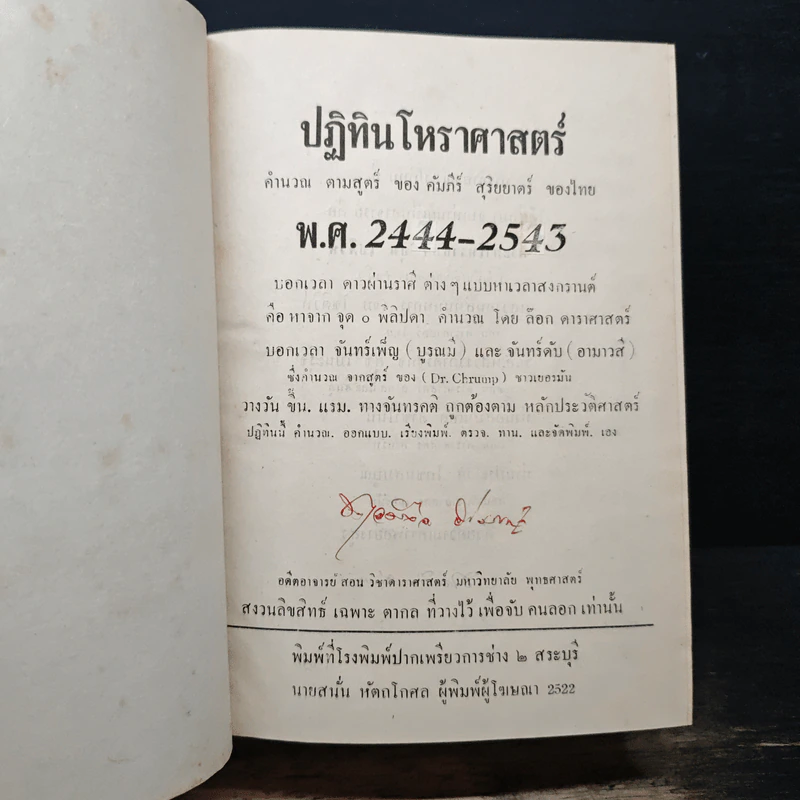 ปฏิทินโหราศาสตร์
คำนวณ ตามสูตร์ ของ คัมภีร์ สุริยยาตร์ ของไทย
พ.ศ. 2444-2543
บอกเวลา ดาวผ่านราศี ต่าง ๆ แบบหาเวลาสงกรานต์
คือ หาจาก จุด ๐ พิลิปดา คำนวณ โดย ล๊อก ดาราศาสตร์
บอกเวลา จันทร์เพ็ญ ( บูรณมี ) และ จันทร์ดับ ( อามาวสี )
ซึ่งคำนวณ จากสูตร์ ของ ( Dr. Chrump ) ชาวเยอรมัน
วางวัน ขึ้น. แรม. ทางจันทรคติ ถูกต้องตาม หลักประวัติศาสตร์
ปฏิทินนี้ คำนวณ. ออกแบบ. เรียงพิมพ์. ตรวจ. ทาน. และจัดพิมพ์. เอง
อดีตอาจารย์ สอน วิชาดาราศาสตร์ มหาวิทยาลัย พุทธศาสตร์
สงวนลิขสิทธิ์ เฉพาะ ตากล ที่วางไว้ เพื่อจับ คนลอก เท่านั้น
พิมพ์ที่โรงพิมพ์ปากเพรียวการช่าง ๒ สระบุรี
นายสนั่น หัตถโกศล ผู้พิมพ์ผู้โฆษณา 2522